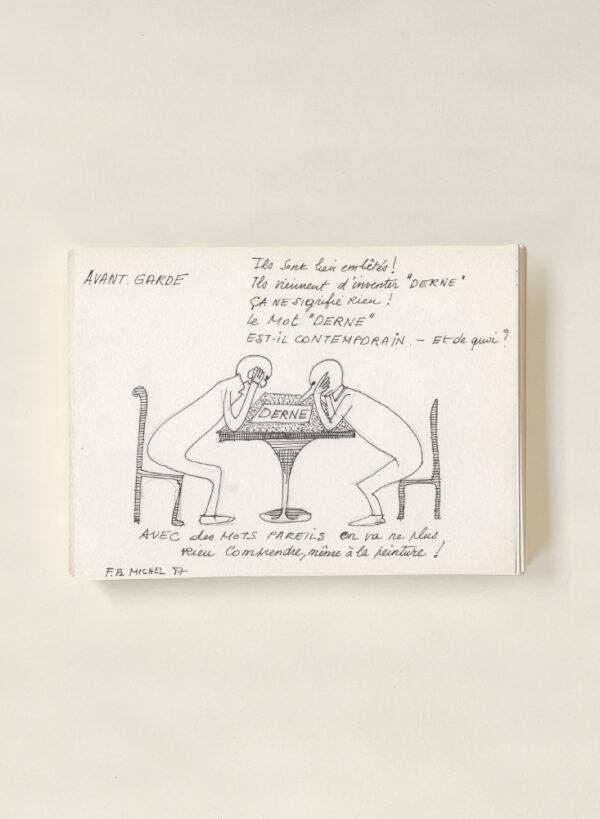 AVANT. GARDE
Ils sont bien embêtés!
Ils viennent d'inventer "DERNE"
ÇA NE signifie Rien!
Le Mot "DERNE"
EST-IL CONTEMPORAIN. – Et de quoi?
DERNE
AVEC des MOTS PAREILS on va ne plus
Rien Comprendre, même à la peinture!
F.B. MICHEL 97